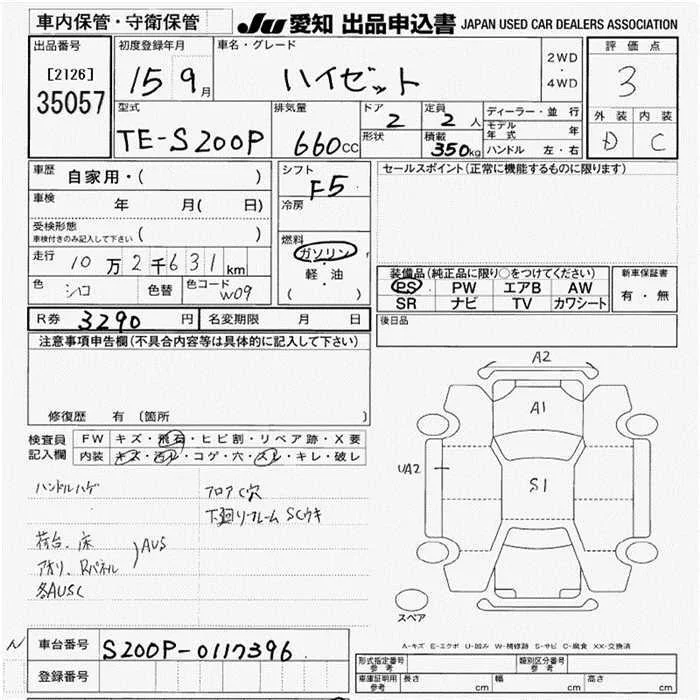 車内保管・守衛保管 JU 愛知 出品申込書 JAPAN USED CAR DEALERS ASSOCIATION
出品番号 初度登録年月 車名・グレード 評価点
[2126]
35057
15 9月 ハイゼット 2WD・4WD 3
型式 排気量 ドア 定員 ディーラー・並行 外装 内装
TE-S200P 660cc 2 2人 モデル年式 年 D C
形状 積載 350kg ハンドル 左・右
車歴 自家用・( ) シフト F5 セールスポイント(正常に機能するものに限ります)
車検 年 月( 日) 冷房
受検形態
車検付きのみ記入して下さい ( )
燃料 ガソリン・軽油 ( )
走行 10万2千631km
装備品(純正品に限り○をつけてください) 新車保証書
色 シロ 色替 色コード W09
PS PW エアB AW 有・無
SR ナビ TV カワシート
R券 3290円 名変期限 月 日 後日品
注意事項申告欄(不具合内容等は具体的に記入して下さい)
修復歴 有 [箇所 ]
検査員記入欄 FW キズ・飛石・ヒビ割・リペア跡・X要
内装 キズ・汚レ・コゲ・穴・スレ・キレ・破レ
ハンドルハゲ フロアC穴
下廻リフレームSCウキ
荷台、床
アオリ、Rパネル )AUS
各AUSC
A2
A1
UA2
S1
スペア
A-キズ E-エクボ U-凹み W-補修跡 S-サビ C-腐食 XX-交換済
車台番号 S200P-0117396
登録番号
形式指定番号 参考 類別区分番号 参考
車庫証明用 参考 長さ cm 幅 cm 高さ cm